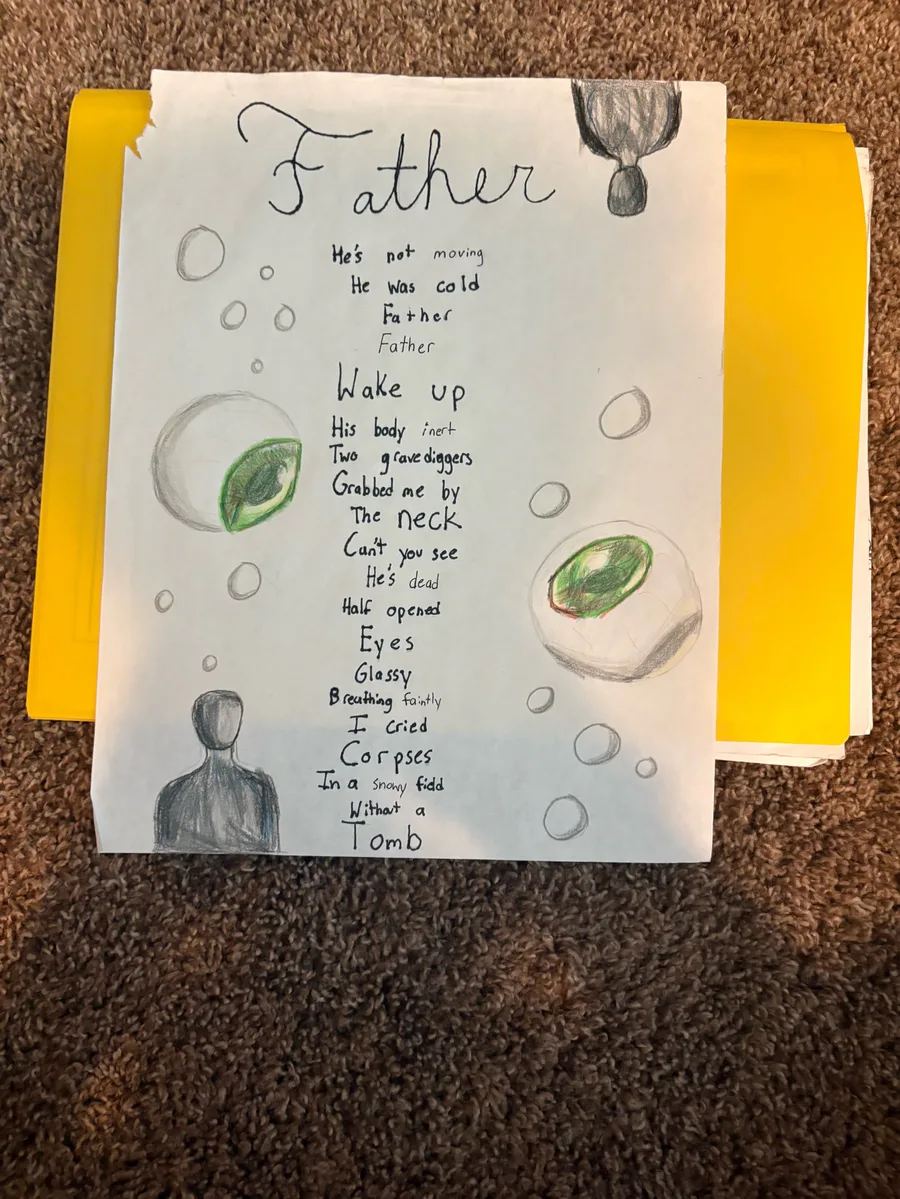 Father
He's not moving
He was cold
Father
Father
Wake up
His body inert
Two gravediggers
Grabbed me by
The neck
Can't you see
He's dead
Half opened
Eyes
Glassy
Breathing faintly
I cried
Corpses
In a snowy field
Without a
Tomb